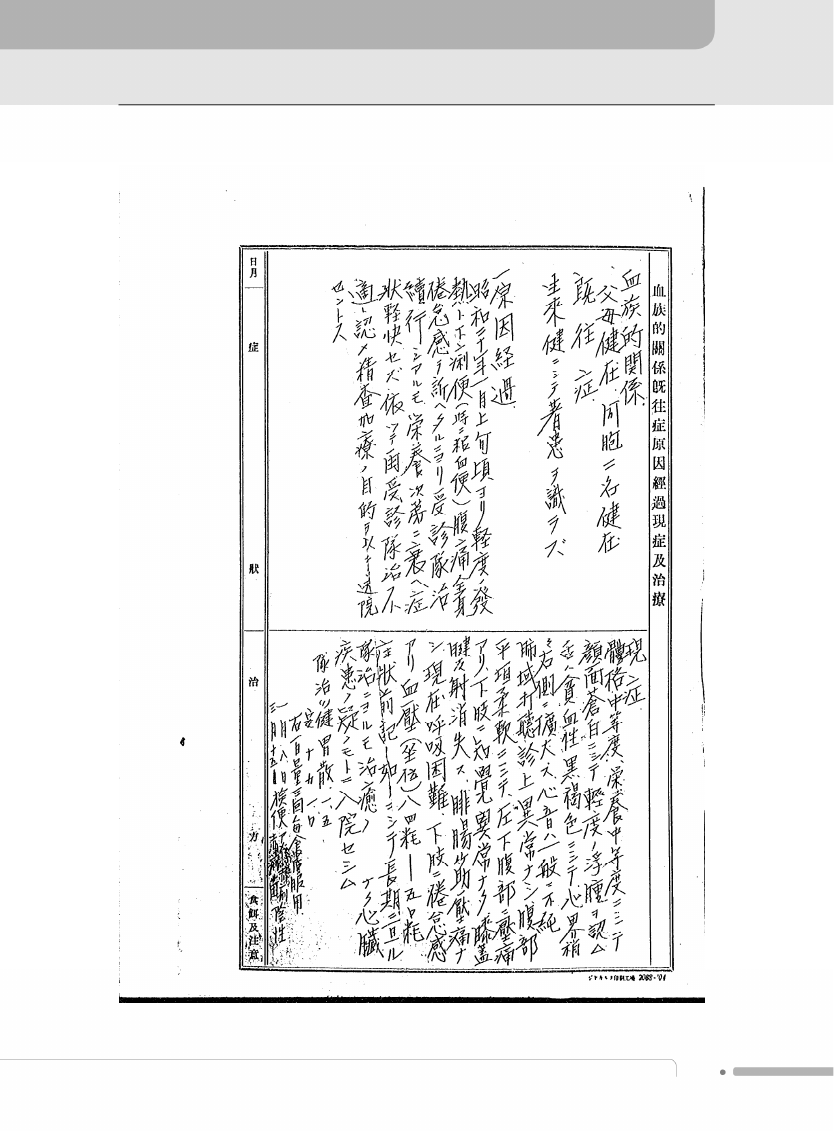 血族的關係既往症原因經過現症及治療
血族的関係
父母健在 同胞二名健在
既往症
生来健ニシテ著患ヲ識ラズ
一原因経過
昭和二十年一月上旬頃ヨリ軽度ノ發
熱ト下痢便(時ニ粘血便)腹痛全身
倦怠感ヲ訴ヘタルニヨリ受診隊治
續行シアルモ栄養次第ニ衰ヘ症
状軽快セズ依ッテ再受診隊治不
適ト認メ精査加療ノ目的ヲ以テ送院
セントス
現症
體格中等度、栄養中等度ニシテ
顔面蒼白ニシテ軽度ノ浮腫ヲ認ム
貧血性黒褐色ニシテ心界稍
右側ニ擴大ス心音ハ一般ニ不純
肺域打聴診上異常ナシ腹部
平坦柔軟ニシテ左下腹部ニ壓痛
アリ、下肢ニ知覚異常ナク膝蓋
腱反射消失ス、腓腸筋壓痛ナ
シ現在呼吸困難、下肢ニ倦怠感
アリ血壓(坐位)八四粍—五〇粍
症状前記ノ如クニシテ長期ニ亘ル
隊治ニヨルモ治癒ノ ナク心臓
疾患ノ疑ノモトニ入院セシム
隊治ハ健胃散 一、五
右 三回毎食後服用
月八日検便 陰性
三月十五日
日月
症
狀
治
方
食餌及注意
2083-'04